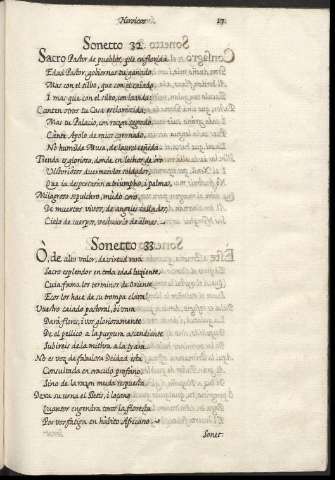 Heroicos. 17.
Sonetto 32.
Sacro Pastor de pueblos, que en florida
Edad Pastor, gobiernas tu ganado
Mas con el silbo, que con el caiado
I mas que con el silbo, con la vida:
Canten otros tu Casa esclarecida
Mas tu Palacio, con razon sagrado
Cante Apolo de raios coronado,
No humilde Musa, de laurel ceñida
Tienda es gloriosa, donde en lechos de
Victorioso duermen los soldados,
Que ia despertaràn a triumphos, i palmas,
Milagroso sepulchro, mudo coro
De muertos vivos, de angeles callados,
Cielo de cuerpos, vestuario de almas.
Sonetto 33.
Ó, de alto valor, de virtud rara
Sacro esplendor en toda edad luziente
Cuia fama los terminos de Oriente
Ecos los haze de su trompa clara
Vuestro caiado pastoral, oi vara
Dará flores, i vos gloriosamente
De el pellico a la purpura ascendiente
Subireis de la mitra a la tyara
No es voz de fabulosa Deidad esta
Consultada en oraculo profano,
Sino de la razon muda respuesta
Dexa su urna el Betis, i loçano
Quantos engendra toros la floresta
Por vos fatiga en habito Africano
Sonet.